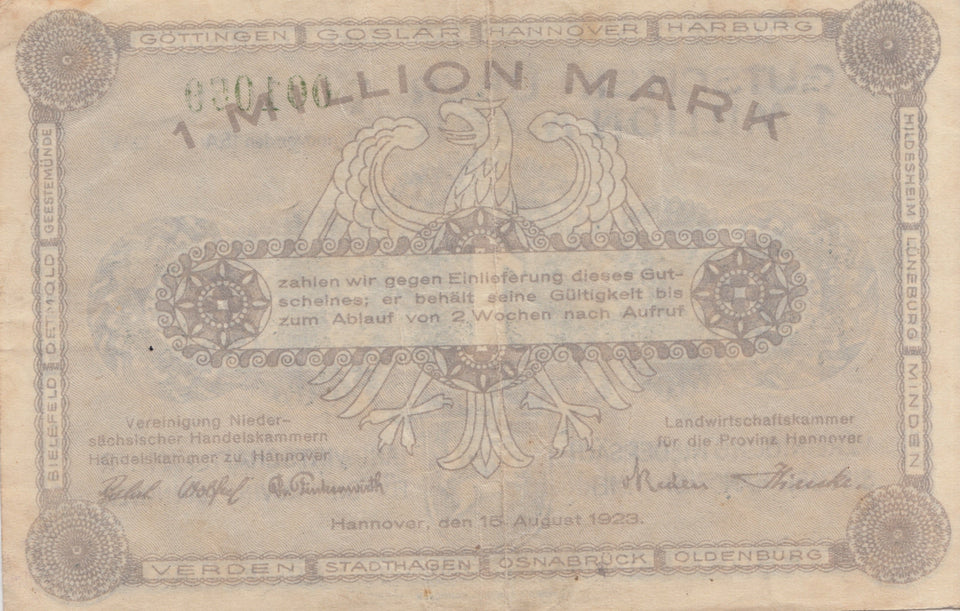 GÖTTINGEN GOSLAR HANNOVER HARBURG
1 MILLION MARK
GEESTEMÜNDE
DETMOLD
BIELEFELD
HILDESHEIM
LÜNEBURG
MINDEN
zahlen wir gegen Einlieferung dieses Gut-
scheines; er behält seine Gültigkeit bis
zum Ablauf von 2 Wochen nach Aufruf
Vereinigung Nieder-
sächsischer Handelskammern
Handelskammer zu Hannover
Landwirtschaftskammer
für die Provinz Hannover
Hannover, den 15. August 1923.
VERDEN STADTHAGEN OSNABRÜCK OLDENBURG